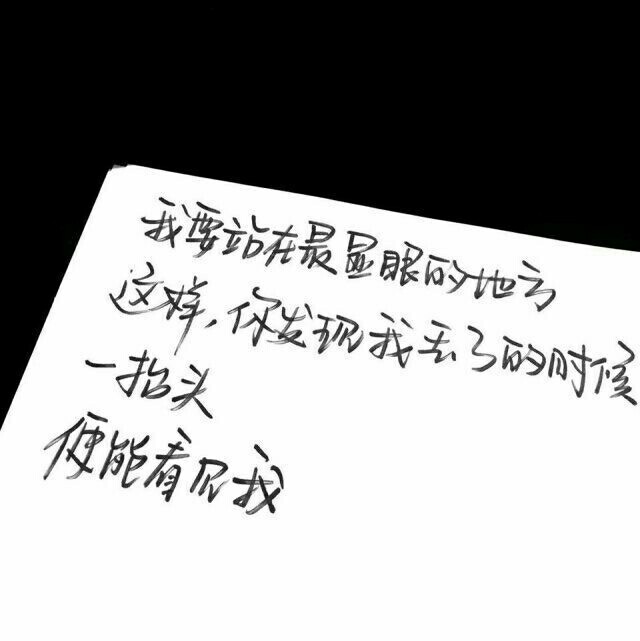 我要站在最显眼的地方
这样,你发现我丢了的时候
一抬头
便能看见我